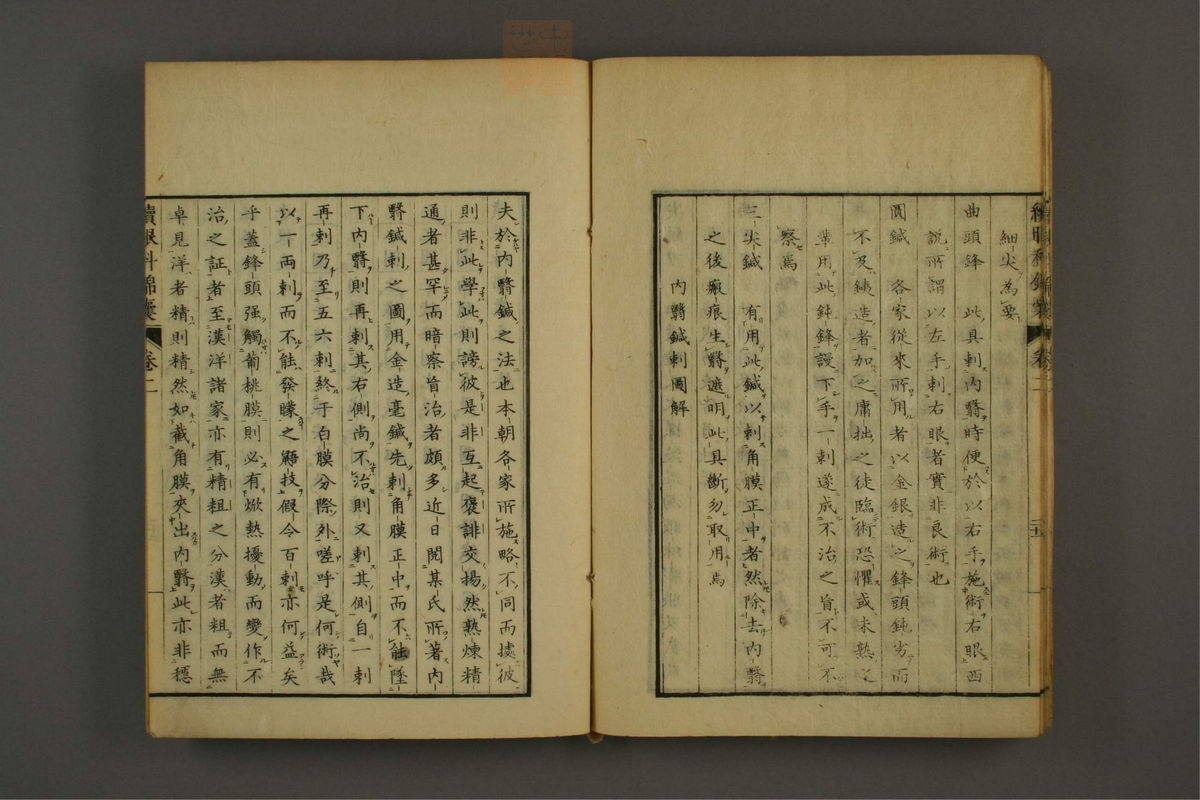 細尖為要
曲頭鋒　此具刺內翳時便於以右手施術右眼西
說所謂以左手刺右眼者實非良術也
圓鍼　各家從來所用者以金銀造之鋒頭鈍劣而
不及鐵造者加之庸拙之徒臨術恐懼或未熟之
輩用此鈍鋒謾下手一刺遂成不治之盲不可不
察焉
三尖鍼　有用此鍼以刺角膜正中者然除去內翳
之後瘢痕生翳遮明此具斷勿取用焉
內翳鍼刺圖解
續眼科錦囊 卷二
夫於內翳鍼之法也本朝各家所施略不同而據彼
則非此學此則謗彼是非互起褒誹交揚然熟煉精
通者甚罕而暗察旨治者頗多近日閱某氏所著內
翳鍼刺之圖用金造毫鍼先刺角膜正中而不墜
下內翳則再刺其右側尚不治則又刺其側自一刺
再刺乃至五六刺終于白膜分際外嗟呼是何術哉
以一兩刺而不能發矇之技假令百刺亦何益矣
乎蓋鋒頭强觸葡桃膜則必有焮熱擾動而變作不
治之証者至漢洋諸家亦有精粗之分漢者粗而無
卓見洋者精則精然如截角膜夾出內翳此亦非穩
續眼科錦囊 卷二